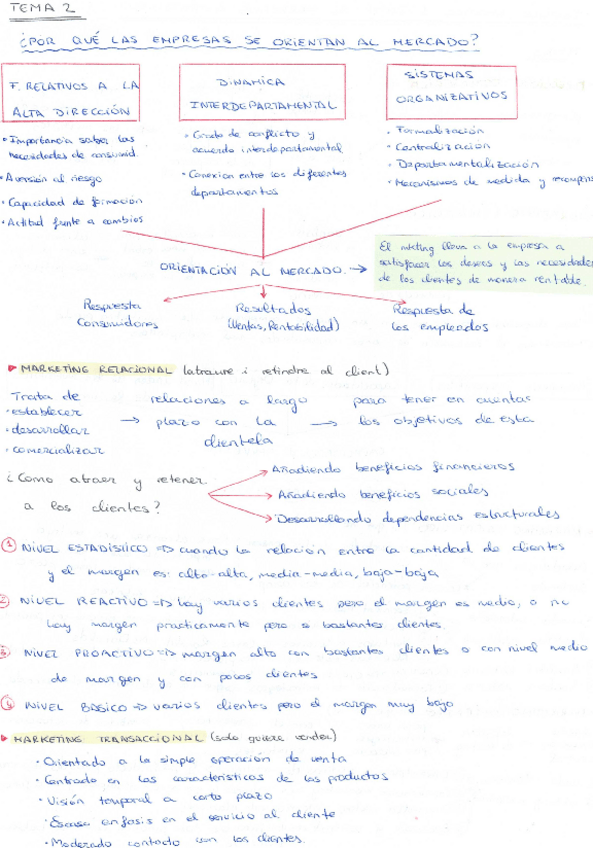 TEMA 2
¿POR QUÉ LAS EMPRESAS SE ORIENTAN AL MERCADO?
F. RELATIVOS A LA
ALTA DIRECCIÓN
• Importancia saber las
necesidades de consumid.
• Aversión al riesgo
• Capacidad de formación
• Actitud frente a cambios
DINAMICA
INTERDEPARTAMENTAL
• Grado de conflicto y
acuerdo interdepartamental
• Conexion entre los diferentes
departamentos
SISTEMAS
ORGANIZATIVOS
• Formalización
• Centralización
• Departamentalización
• Mecanismos de medida y recompens
ORIENTACIÓN AL MERCADO. →
El mkting lleva a la empresa a
satisfacer los deseos y las necesidades
de los clientes de manera rentable.
Respuesta
Consumidores
Resultados
(Ventas, Rentabilidad)
Respuesta de
los empleados
MARKETING RELACIONAL (atraure i retindre al client)
Trata de
• establecer
• desarrollar
• comercializar
→ relaciones a largo
plazo con la
clientela
→ para tener en cuenta
los objetivos de esta
¿Como atraer y retener
a los clientes?
Añadiendo beneficios financieros
Añadiendo beneficios sociales
Desarrollando dependencias estructurales
1 NIVEL ESTADÍSTICO => cuando la relación entre la cantidad de clientes
y el margen es: alto-alta, media-media, baja-baja
2 NIVEL REACTIVO => hay varios clientes pero el margen es medio, o no
hay margen practicamente pero a bastantes clientes.
3 NIVEL PROACTIVO => margen alto con bastantes clientes o con nivel medio
de margen y con pocos clientes
4 NIVEL BÁSICO => varios clientes pero el margen muy bajo
MARKETING TRANSACCIONAL (solo quiere vender)
• Orientado a la simple operación de venta
• Centrado en las características de los productos
• Visión temporal a corto plazo
• Escaso énfasis en el servicio al cliente
• Moderado contacto con los clientes.